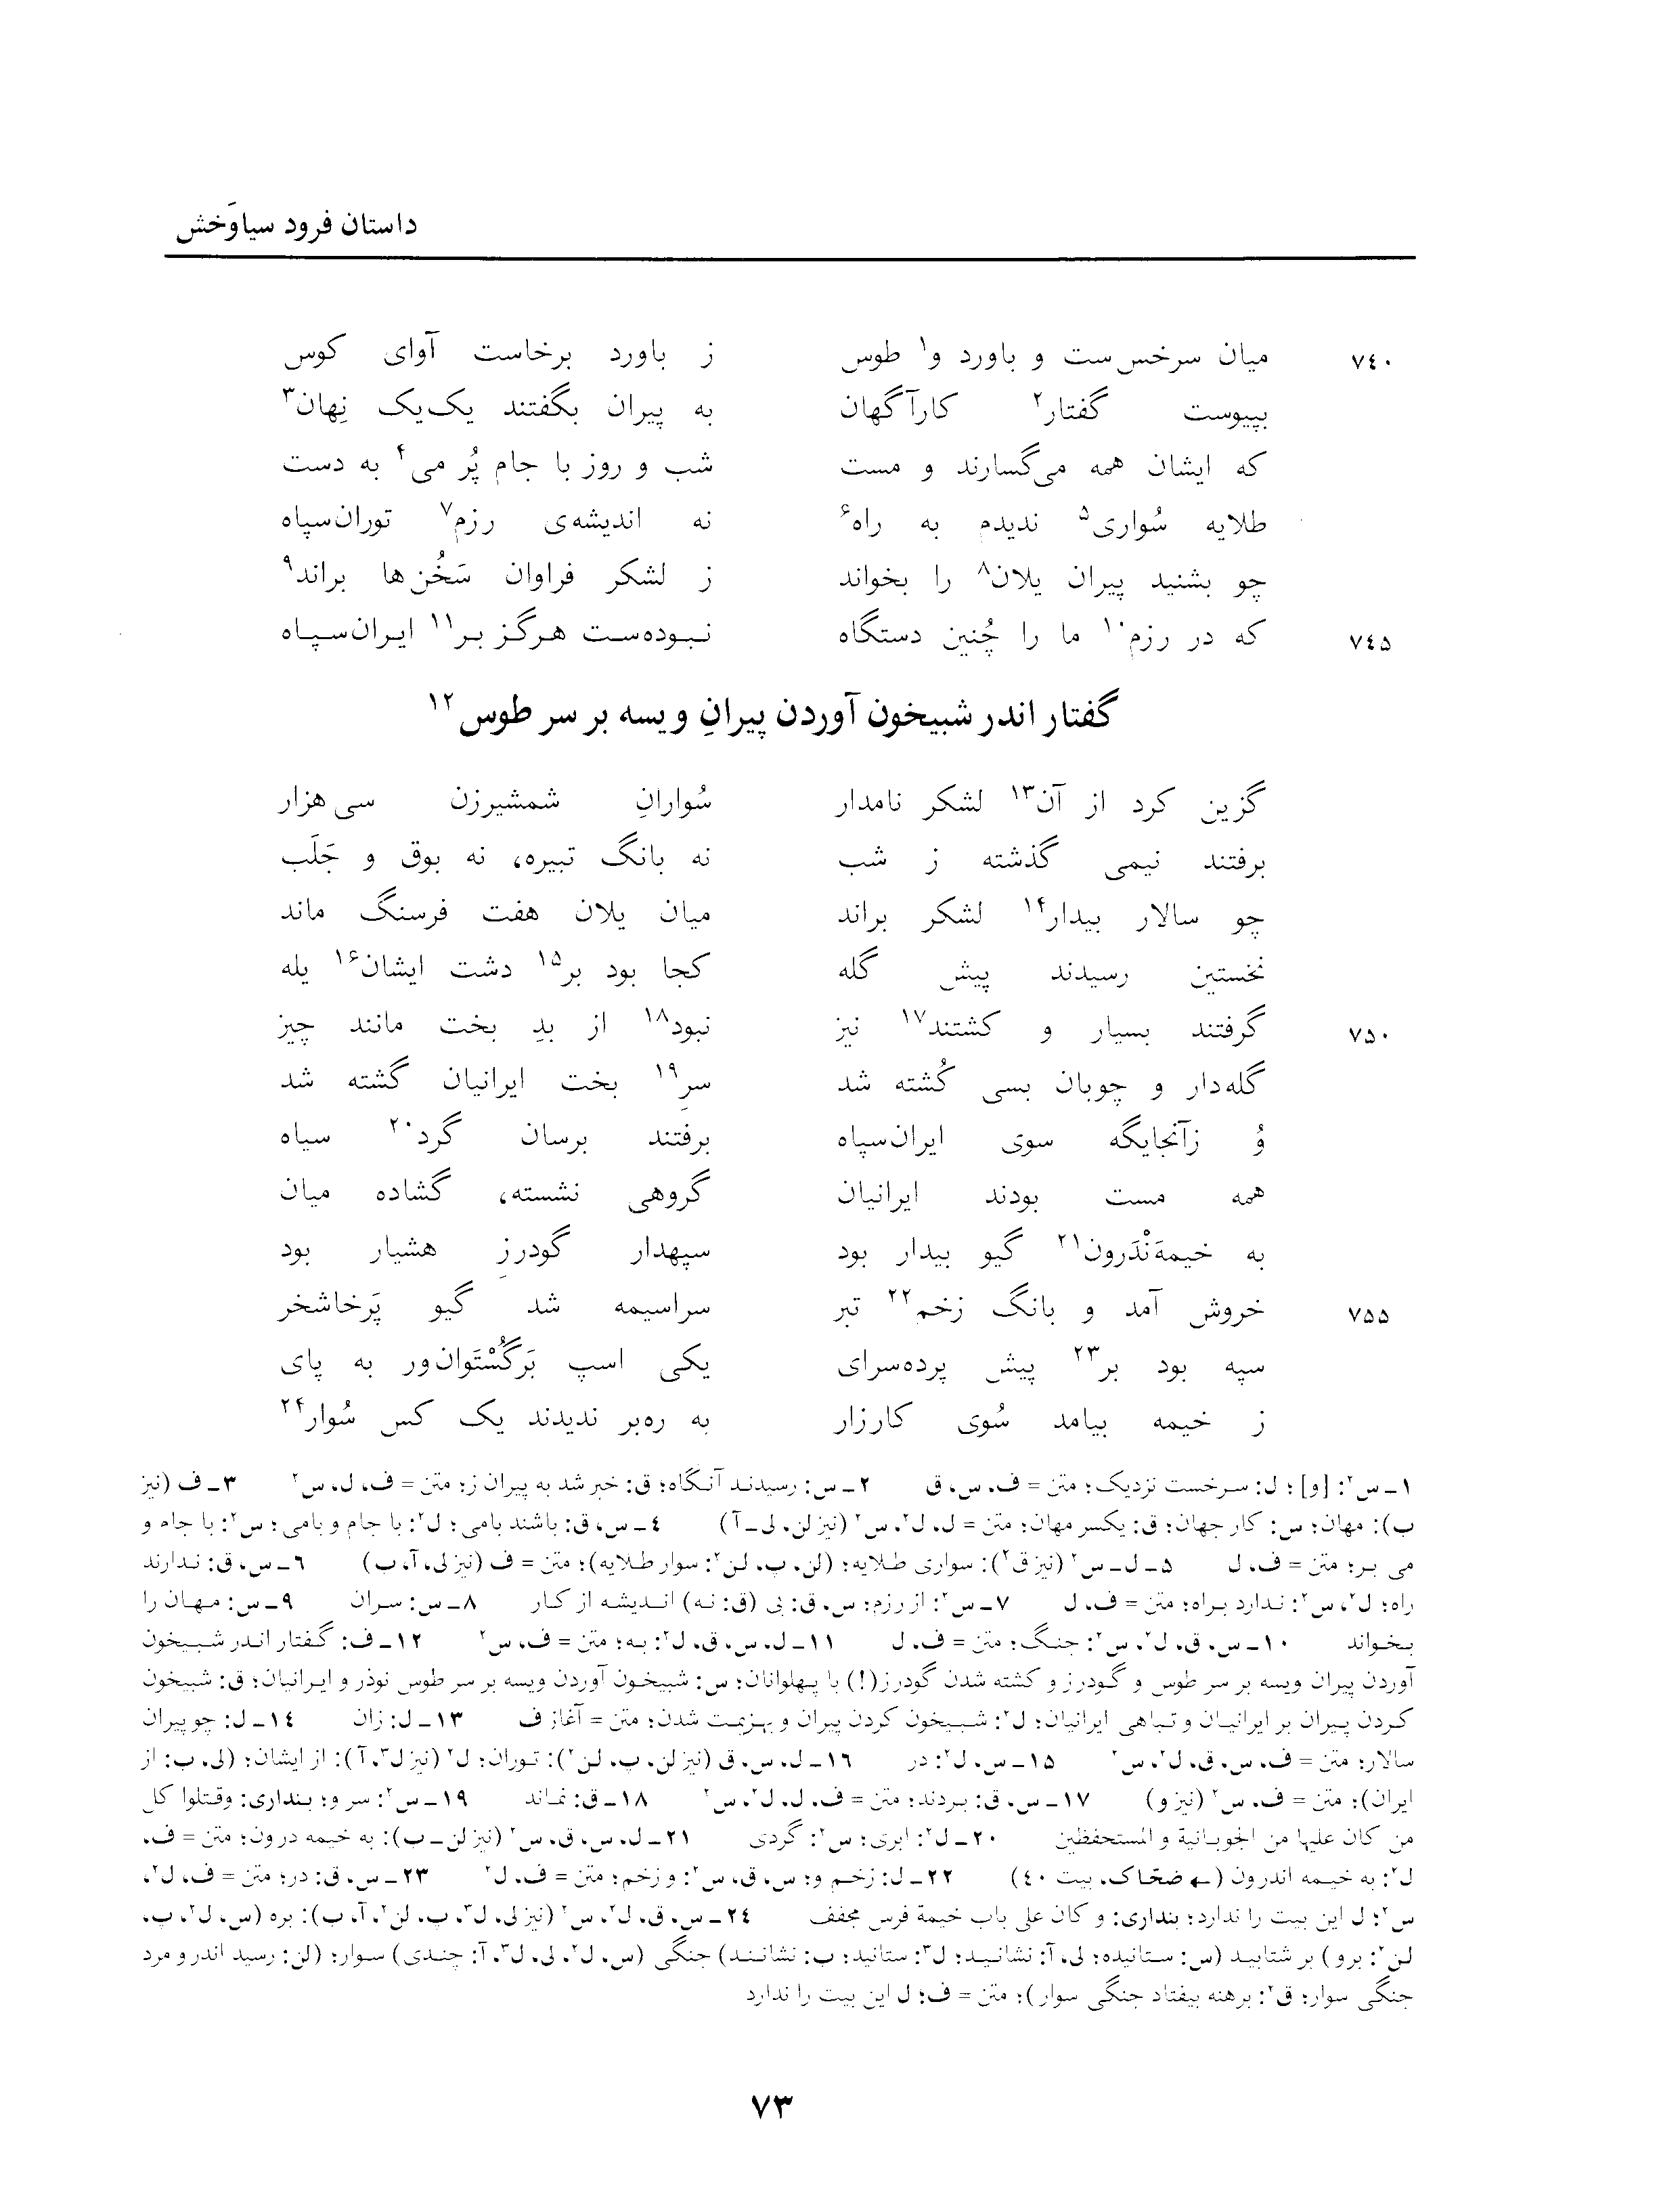 داستان فرود سیاوَخش
۷۴۰ میان سرخس‌ست و باورد و۱ طوس ز باورد برخاست آوای کوس
بپیوست گفتار۲ کارآگهان به پیران بگفتند یک‌یک نِهان۳
که ایشان همه می‌گسارند و مست شب و روز با جام پُر می۴ به دست
طلایه سُواری۵ ندیدم به راه۶ نه اندیشه‌ی رزم۷ توران‌سپاه
چو بشنید پیران یلان۸ را بخواند ز لشکر فراوان سَخُن‌ها براند۹
۷۴۵ که در رزم۱۰ ما را چُنین دستگاه نبوده‌ست هرگز بر۱۱ ایران‌سپاه
گفتار اندر شبیخون آوردن پیرانِ ویسه بر سر طوس۱۲
گزین کرد از آن۱۳ لشکر نامدار سُوارانِ شمشیرزن سی‌هزار
برفتند نیمی گذشته ز شب نه بانگ تبیره، نه بوق و جَلَب
چو سالار بیدار۱۴ لشکر براند میان یلان هفت فرسنگ ماند
نخستین رسیدند پیش گله کجا بود بر۱۵ دشت ایشان۱۶ یله
۷۵۰ گرفتند بسیار و کشتند۱۷ نیز نبود۱۸ از بدِ بخت مانند چیز
گله‌دار و چوبان بسی کُشته شد سرِ۱۹ بخت ایرانیان گشته شد
وُ زآنجایگه سوی ایران‌سپاه برفتند برسان گرد۲۰ سیاه
همه مست بودند ایرانیان گروهی نشسته، گشاده میان
به خیمه‌َنْدَرون۲۱ گیو بیدار بود سپهدار گودرزِ هشیار بود
۷۵۵ خروش آمد و بانگ زخم۲۲ تبر سراسیمه شد گیو پَرخاشخر
سپه بود بر۲۳ پیش پرده‌سرای یکی اسپ بَرگُسْتَوان‌ور به پای
ز خیمه بیامد سُوی کارزار به ره‌بر ندیدند یک کس سُوار۲۴
۱ـ س۲: [و]؛ ل: سرخست نزدیک؛ متن = ف، س، ق ۲ـ س: رسیدند آنگاه؛ ق: خبر شد به پیران ز؛ متن = ف، ل، س۲ ۳ـ ف (نیز
ب): مهان؛ س: کار جهان؛ ق: یکسر مهان؛ متن = ل، ل۲، س۲ (نیز لن، لی ـ آ) ۴ـ س، ق: باشند بامی؛ ل۲: با جام و بامی؛ س۲: با جام و
می بر؛ متن = ف، ل ۵ـ ل ـ س۲ (نیز ق۲): سواری طلایه؛ (لن، پ، لن۲: سوار طلایه)؛ متن = ف (نیز لی، آ، ب) ۶ـ س، ق: ندارند
راه؛ ل۲، س۲: ندارد براه؛ متن = ف، ل ۷ـ س۲: از رزم؛ س، ق: بی (ق: نه) اندیشه از کار ۸ـ س: سران ۹ـ س: مهان را
بخواند ۱۰ـ س، ق، ل۲، س۲: جنگ؛ متن = ف، ل ۱۱ـ ل، س، ق، ل۲: به؛ متن = ف، س۲ ۱۲ـ ف: گفتار اندر شبیخون
آوردن پیران ویسه بر سر طوس و گودرز و کشته شدن گودرز(!) با پهلوانان؛ س: شبیخون آوردن ویسه بر سر طوس نوذر و ایرانیان؛ ق: شبیخون
کردن پیران بر ایرانیان و تباهی ایرانیان؛ ل۲: شبیخون کردن پیران و بهزیمت شدن؛ متن = آغاز ف ۱۳ـ ل: زان ۱۴ـ ل: چو پیران
سالار؛ متن = ف، س، ق، ل۲، س۲ ۱۵ـ س، ل۲: در ۱۶ـ ل، س، ق (نیز لن، پ، لن۲): توران؛ ل۲ (نیز ل۳، آ): از ایشان؛ (لی، ب: از
ایران)؛ متن = ف، س۲ (نیز و) ۱۷ـ س، ق: بردند؛ متن = ف، ل، ل۲، س۲ ۱۸ـ ق: نماند ۱۹ـ س۲: سر و؛ بنداری: وقتلوا کل
من کان علیها من الجوبانیة و المستحفظین ۲۰ـ ل۲: ابری؛ س۲: گردی ۲۱ـ ل، س، ق، س۲ (نیز لن ـ ب): به خیمه درون؛ متن = ف،
ل۲: به خیمه اندرون (← ضحّاک، بیت ۴۰) ۲۲ـ ل: زخم و؛ س، ق، س۲: و زخم؛ متن = ف، ل۲ ۲۳ـ س، ق: در؛ متن = ف، ل۲،
س۲؛ ل این بیت را ندارد؛ بنداری: و کان علی باب خیمة فرس مجفف ۲۴ـ س، ق، ل۲، س۲ (نیز لی، ل۳، پ، لن۲، آ، ب): بره (س، ل۲، پ،
لن۲: برو) بر شتابید (س: ستانیده؛ لی، آ: نشانید؛ ل۳: ستانید؛ ب: نشانند) جنگی (س، ل۲، لی، ل۳، آ: چندی) سوار؛ (لن: رسید اندرو مرد
جنگی سوار؛ ق۲: برهنه بیفتاد جنگی سوار)؛ متن = ف؛ ل این بیت را ندارد
۷۳